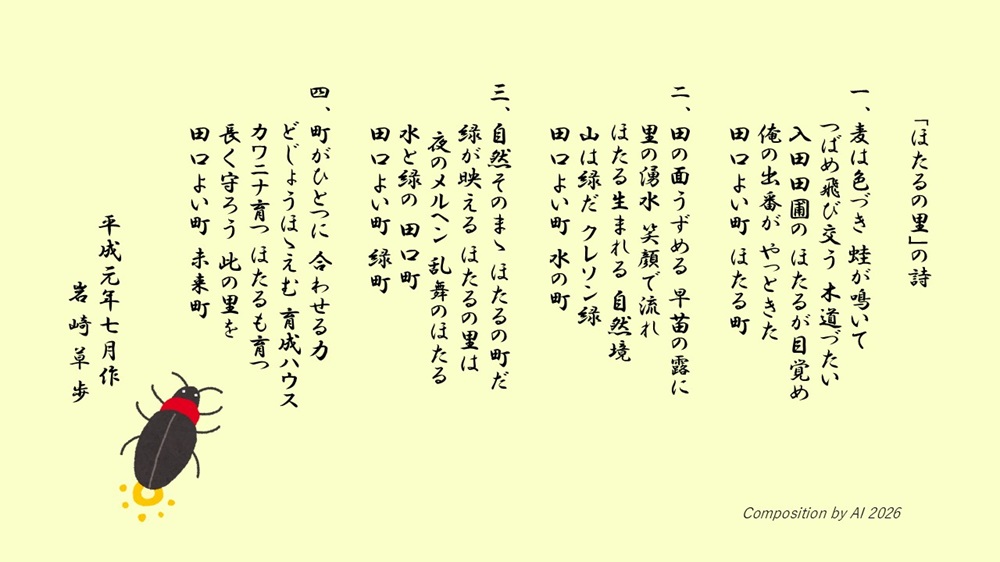 「ほたるの里」の詩
一、麦は色づき 蛙が鳴いて
つばめ飛び交う 木道づたい
入田田圃の ほたるが目覚め
俺の出番が やっときた
田口よい町 ほたる町
二、田の面うずめる 早苗の露に
里の湧水 笑顔で流れ
ほたる生まれる 自然境
山は緑だ クレソン緑
田口よい町 水の町
三、自然そのまゝ ほたるの町だ
緑が映える ほたるの里は
夜のメルヘン 乱舞のほたる
水と緑の 田口町
田口よい町 緑町
四、町がひとつに 合わせる力
どじょうほゝえむ 育成ハウス
カワニナ育つ ほたるも育つ
長く守ろう 此の里を
田口よい町 未来町
平成元年七月作
岩崎草歩
Composition by AI 2026